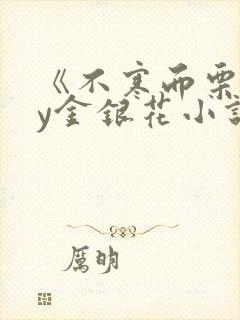 《不寒而栗
y金银花小説
厲明